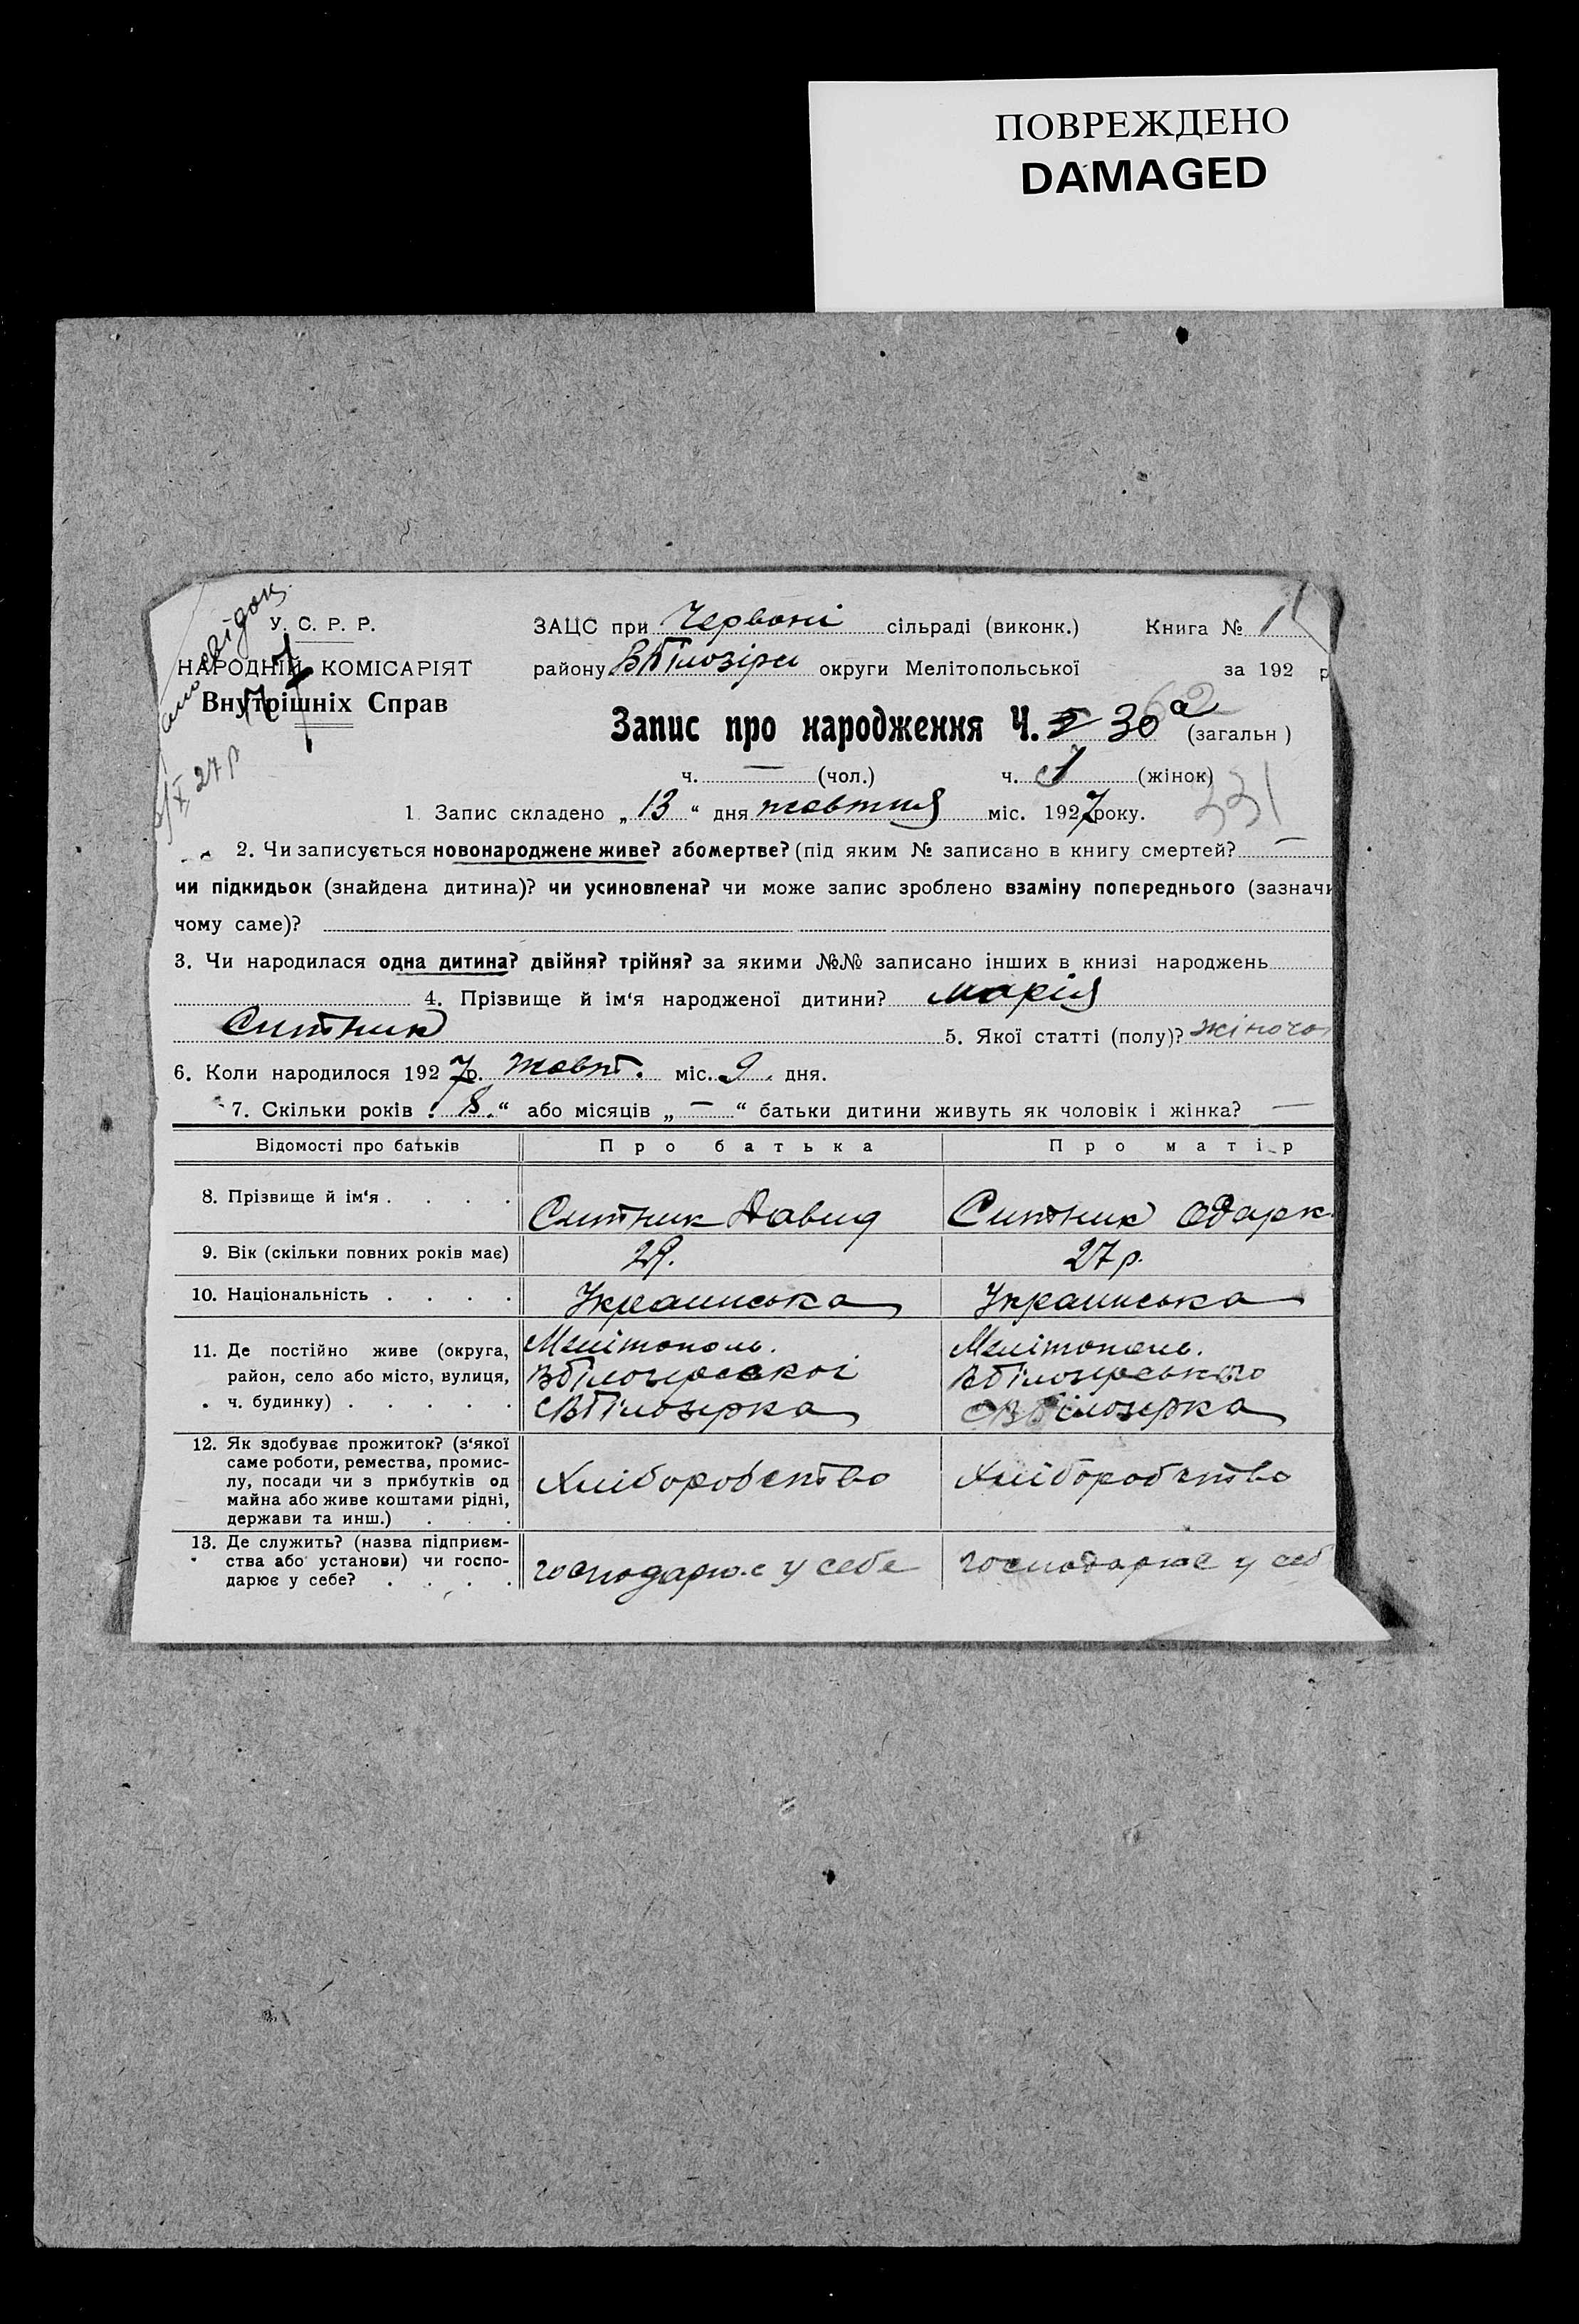 ПОВРЕЖДЕНО
DAMAGED
У. С. Р. Р.
НАРОДНІЙ КОМІСАРІЯТ
Внутрішніх Справ
X 27 р
ЗАЦС при Червоні сільраді (виконк.) Книга № 1
району ВБілозірс округи Мелітопольської за 192 р
Запис про народження Ч. 30 а (загальн)
62
ч. — (чол.) ч. (жінок)
331
1 Запис складено „13“ дня жовтня міс. 1927 року.
2. Чи записується новонароджене живе? або мертве? (під яким № записано в книгу смертей? —
чи підкидьок (знайдена дитина)? чи усиновлена? чи може запис зроблено взаміну попереднього (зазначи
чому саме)?
3. Чи народилася одна дитина? двійня? трійня? за якими №№ записано інших в книзі народжень
4. Прізвище й ім‘я народженої дитини? Марія
Ситник 5. Якої статті (полу)? жіночо
6. Коли народилося 1927 р. Жовт. міс. 9. дня.
7. Скільки років „8.“ або місяців „—“ батьки дитини живуть як чоловік і жінка? —
Відомості про батьків Про батька Про матір
8. Прізвище й ім‘я . . . . Ситник Давид Ситник Одарк
9. Вік (скільки повних років має) 29. 27 р.
10. Національність . . . . Украинська Украинська
11. Де постійно живе (округа, Мелітополь. Мелітополь.
район, село або місто, вулиця, ВБілозерської ВБілозерського
ч. будинку) . . . . . с ВБілозерка с ВБілозерка
12. Як здобуває прожиток? (з‘якої
саме роботи, ремества, промис-
лу, посади чи з прибутків од Хліборобство Хліборобство
майна або живе коштами рідні,
держави та инш.) . . .
13. Де служить? (назва підприєм-
ства або установи) чи госпо- господарює у себе господарює у себ
дарює у себе? . . . .